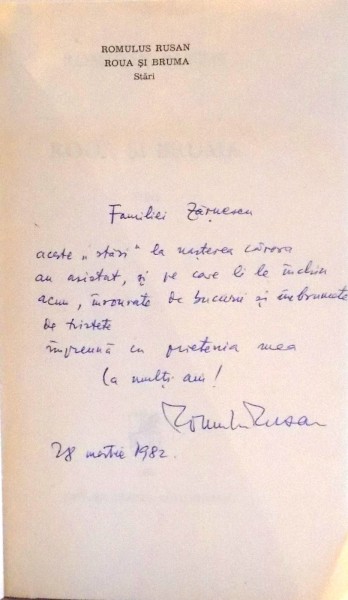 ROMULUS RUSAN
ROUA ȘI BRUMA
Stări
Familiei Zărnescu
aceste „stări” la nașterea cărora
au asistat, și pe care li le închin
acum, înrourate de bucurii și îmbrumate
de tristețe
împreună cu prietenia mea
La mulți ani!
Romulus Rusan
28 martie 1982.